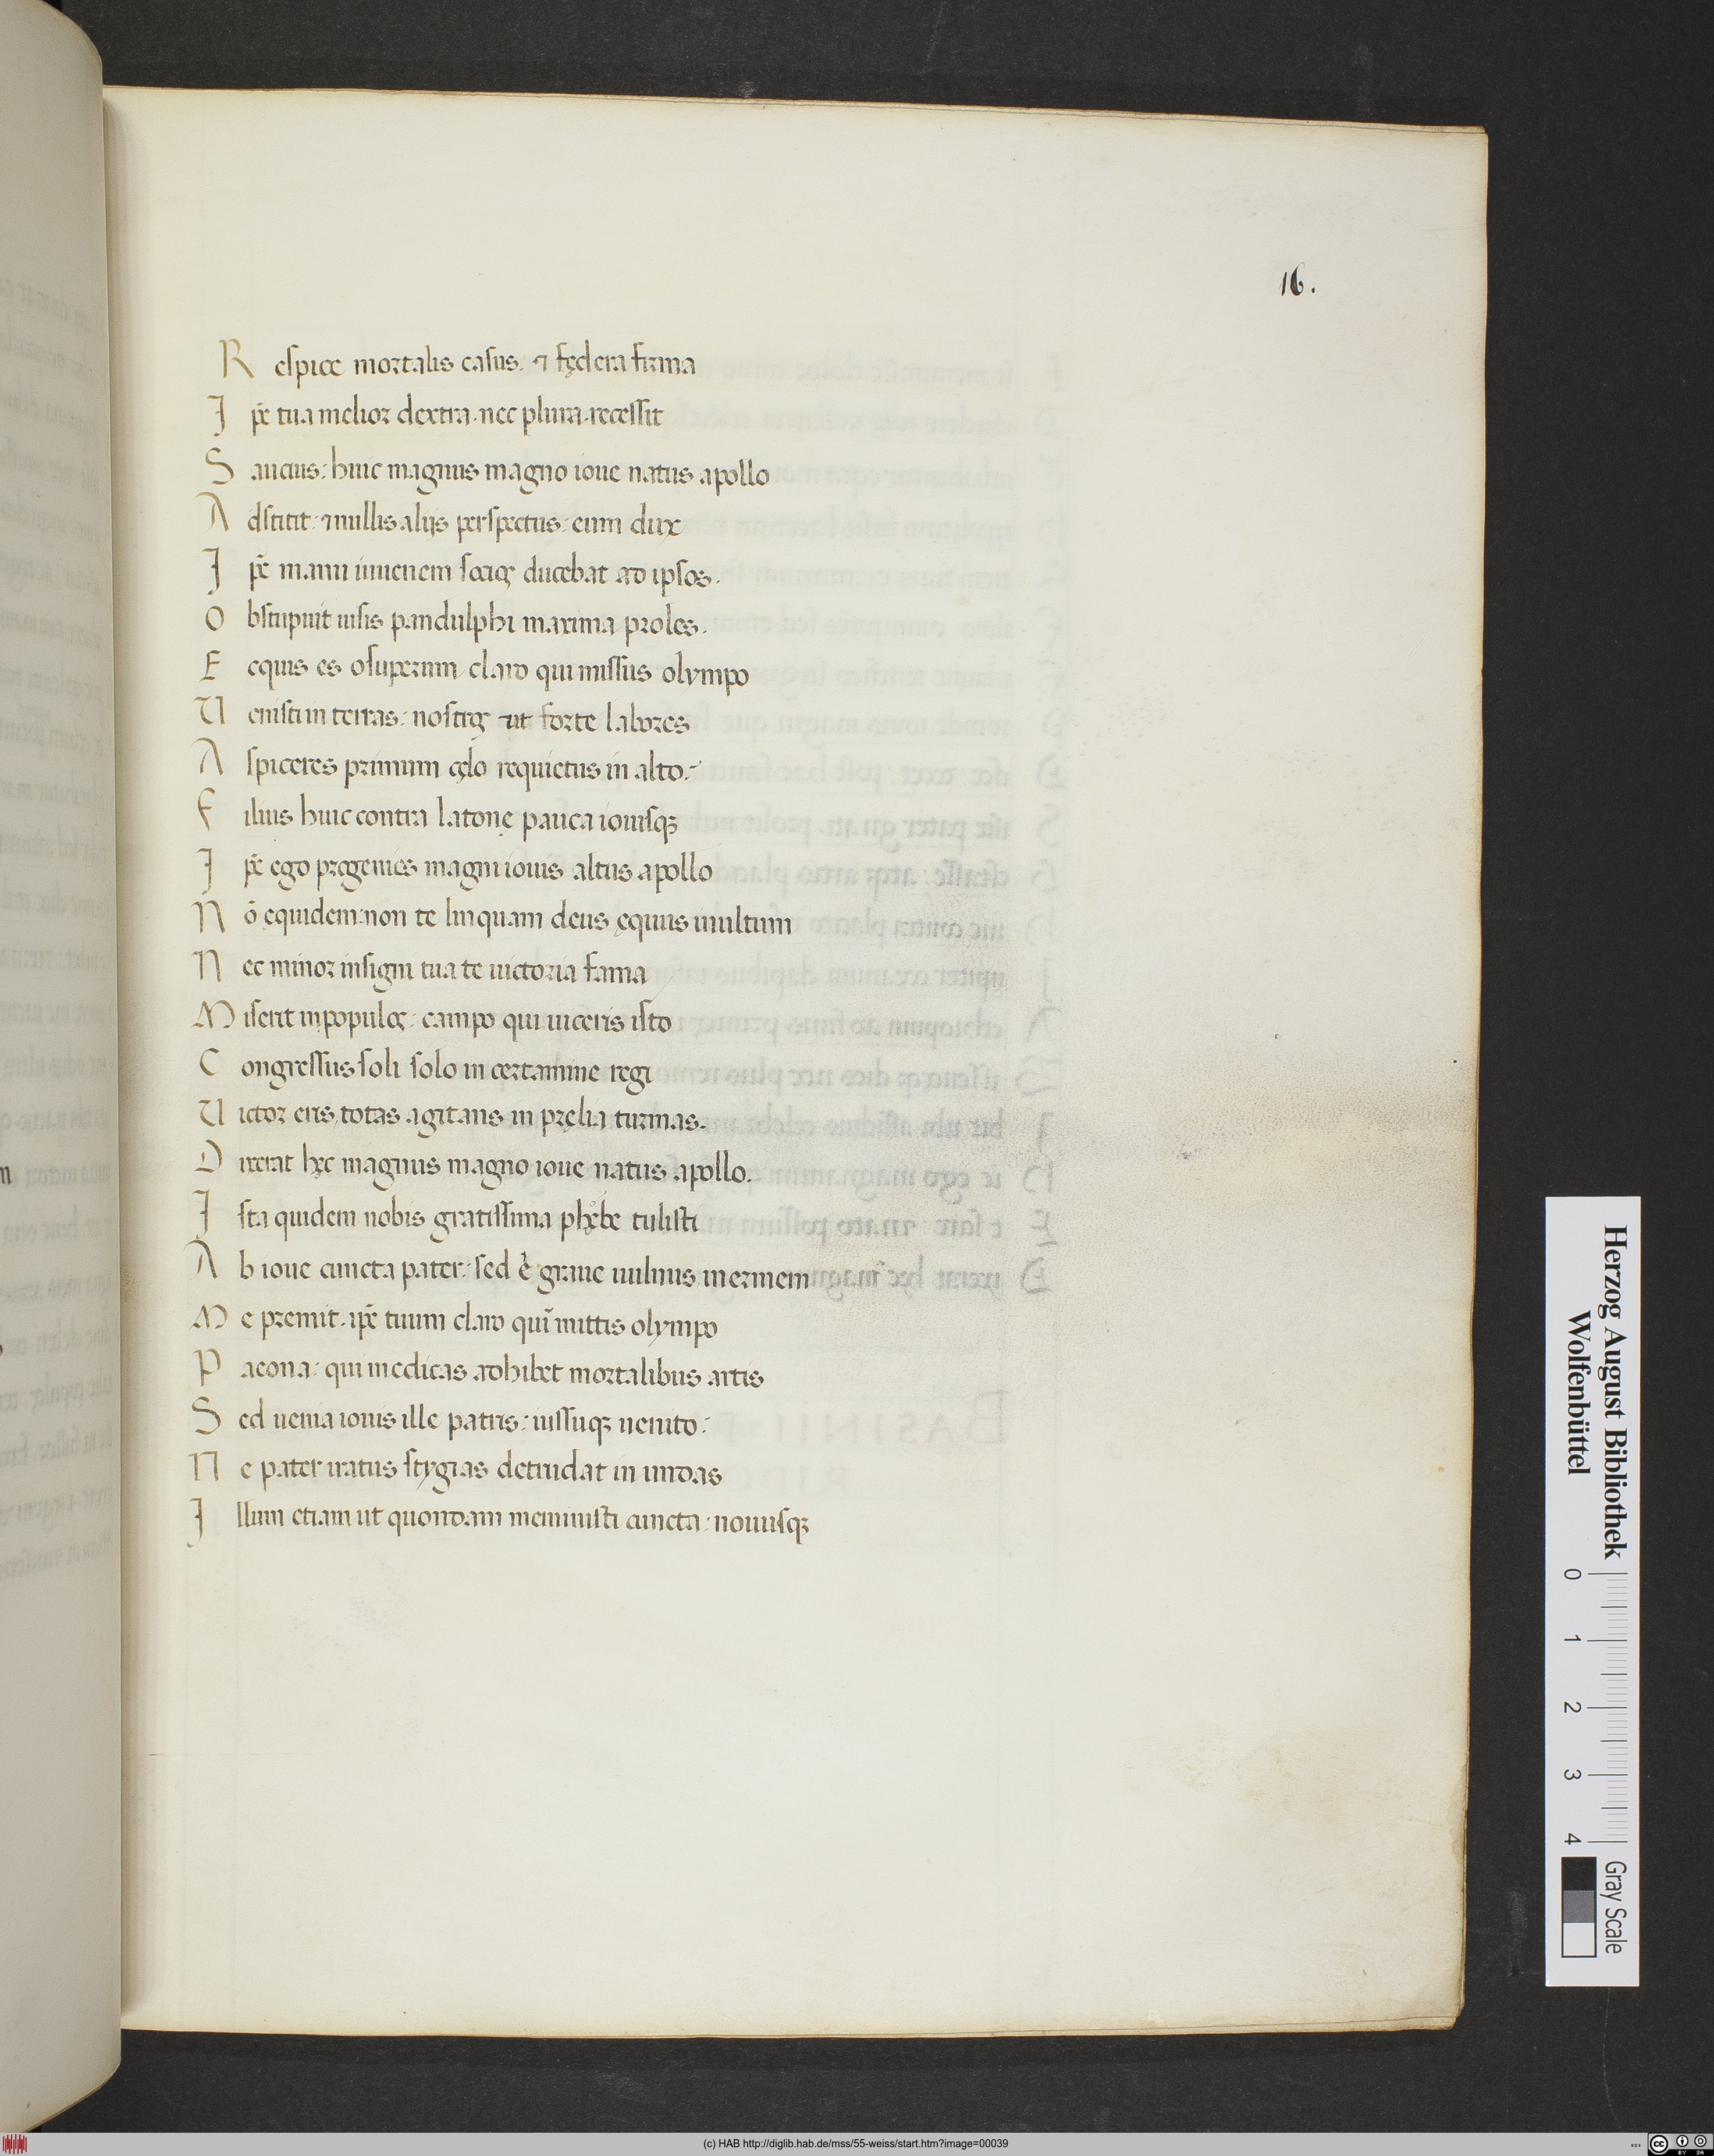 16.
Respice mortalis casus. ⁊ fędera firma
Ip̃e tua melior dextra. nec plura. recessit
Saucius: huic magnus magno ioue natus apollo
Adstitit: ⁊ nullis alijs perspectus: eum dux
Ip̃e manu iuuenem socię ducebat ad ipsos.
Obstupuit uisis pandulphi maxima proles.
Ecquis es o superum, claro qui missus olympo
Uenisti in terras: nostrę ut forte labores
Aspiceres primum cęlo requietus in alto:
Filius huic contra latonę pauca iouisq;
Ip̃e ego progenies magni iouis altus apollo
Nō equidem: non te linquam deus ęquus inultum
Nec minor insigni tua te uictoria fama
Miserit in populos: campo qui uiceris isto
Congressus soli solo in certamine regi
Uictor eris, totas agitans in pręlia turmas.
Dixerat hęc magnus magno ioue natus apollo.
Ista quidem nobis gratissima phębe tulisti
Ab ioue cuncta pater: sed è graue uulnus inermem
Me premit. ip̃e tuum claro quī mittis olympo
Paeona: qui medicas adhibet mortalibus artis
Sed uenia iouis ille patris: iussuq; uenito:
Ne pater iratus stygias detrudat in undas
Illum etiam ut quondam meministi cuncta: nouusq;
Herzog August Bibliothek
Wolfenbüttel
0 1 2 3 4
Gray Scale
(c) HAB http://diglib.hab.de/mss/55-weiss/start.htm?image=00039